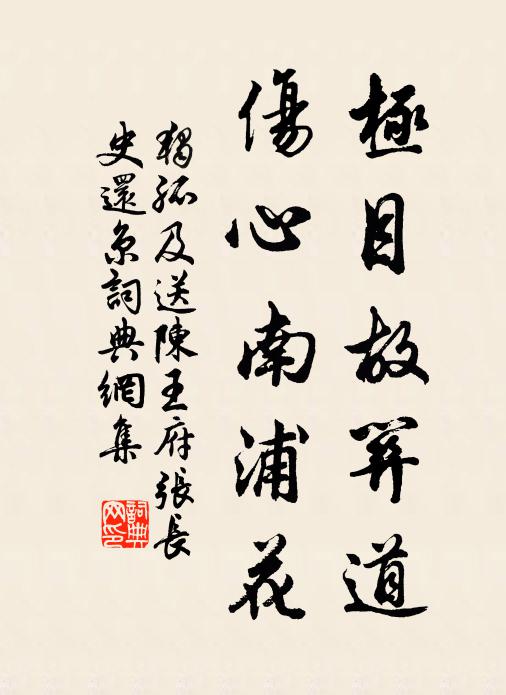 極目故關道
傷心南浦花
獨孤及送陳王府張長
史還京詞典網集
詞典
网印